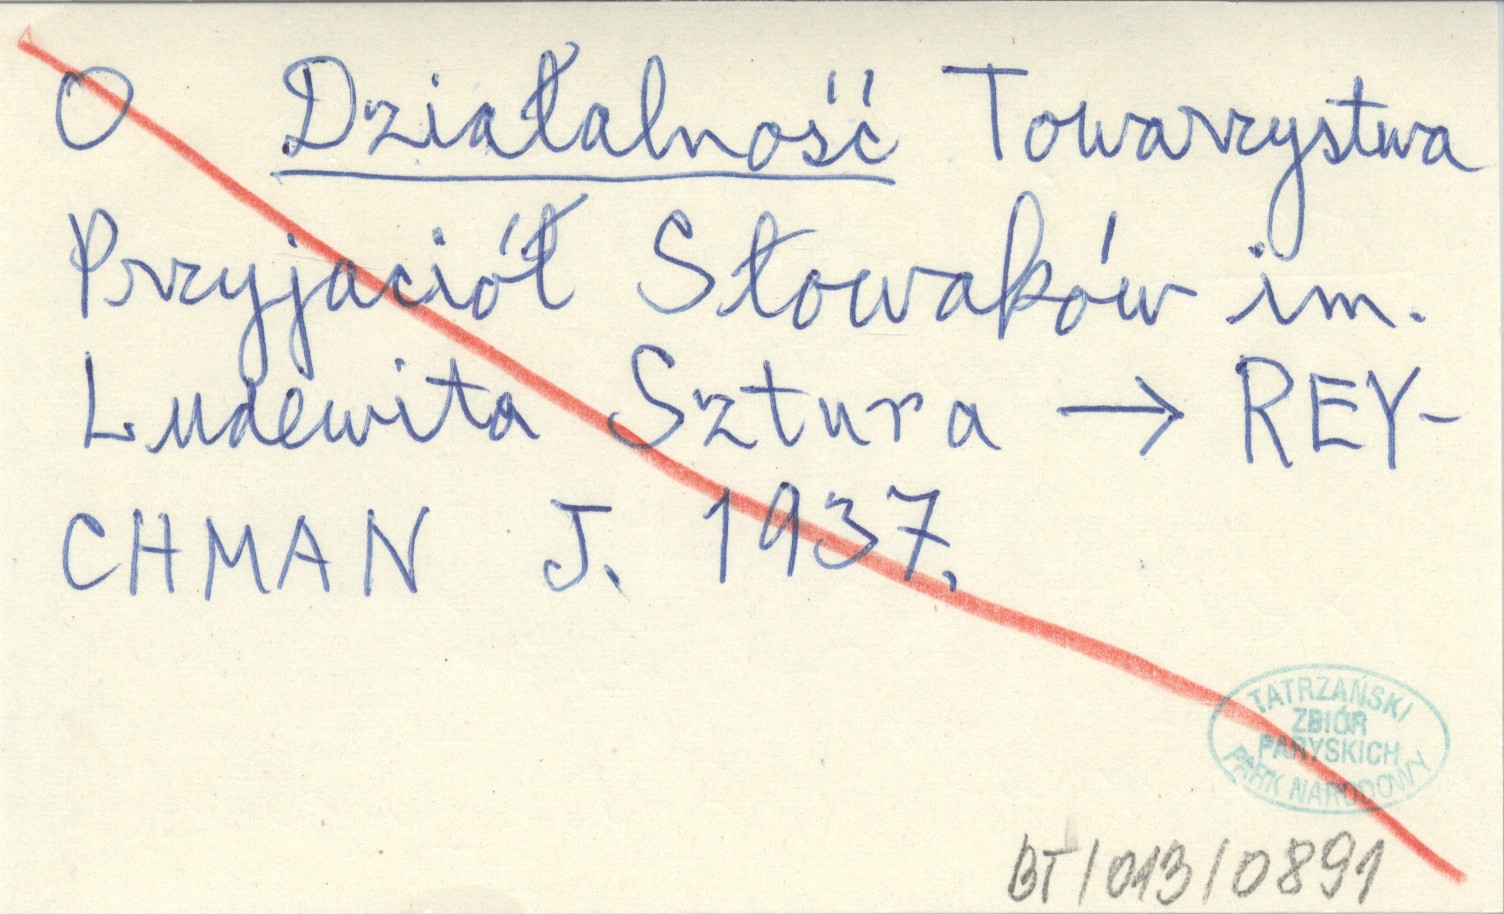 O Działalność Towarzystwa
Przyjaciół Słowaków im.
Ludewita Sztura → REY-
CHMAN J. 1937.
TATRZAŃSKI
ZBIÓR
PARYSKICH
PARK NARODOWY
BT/013/0891